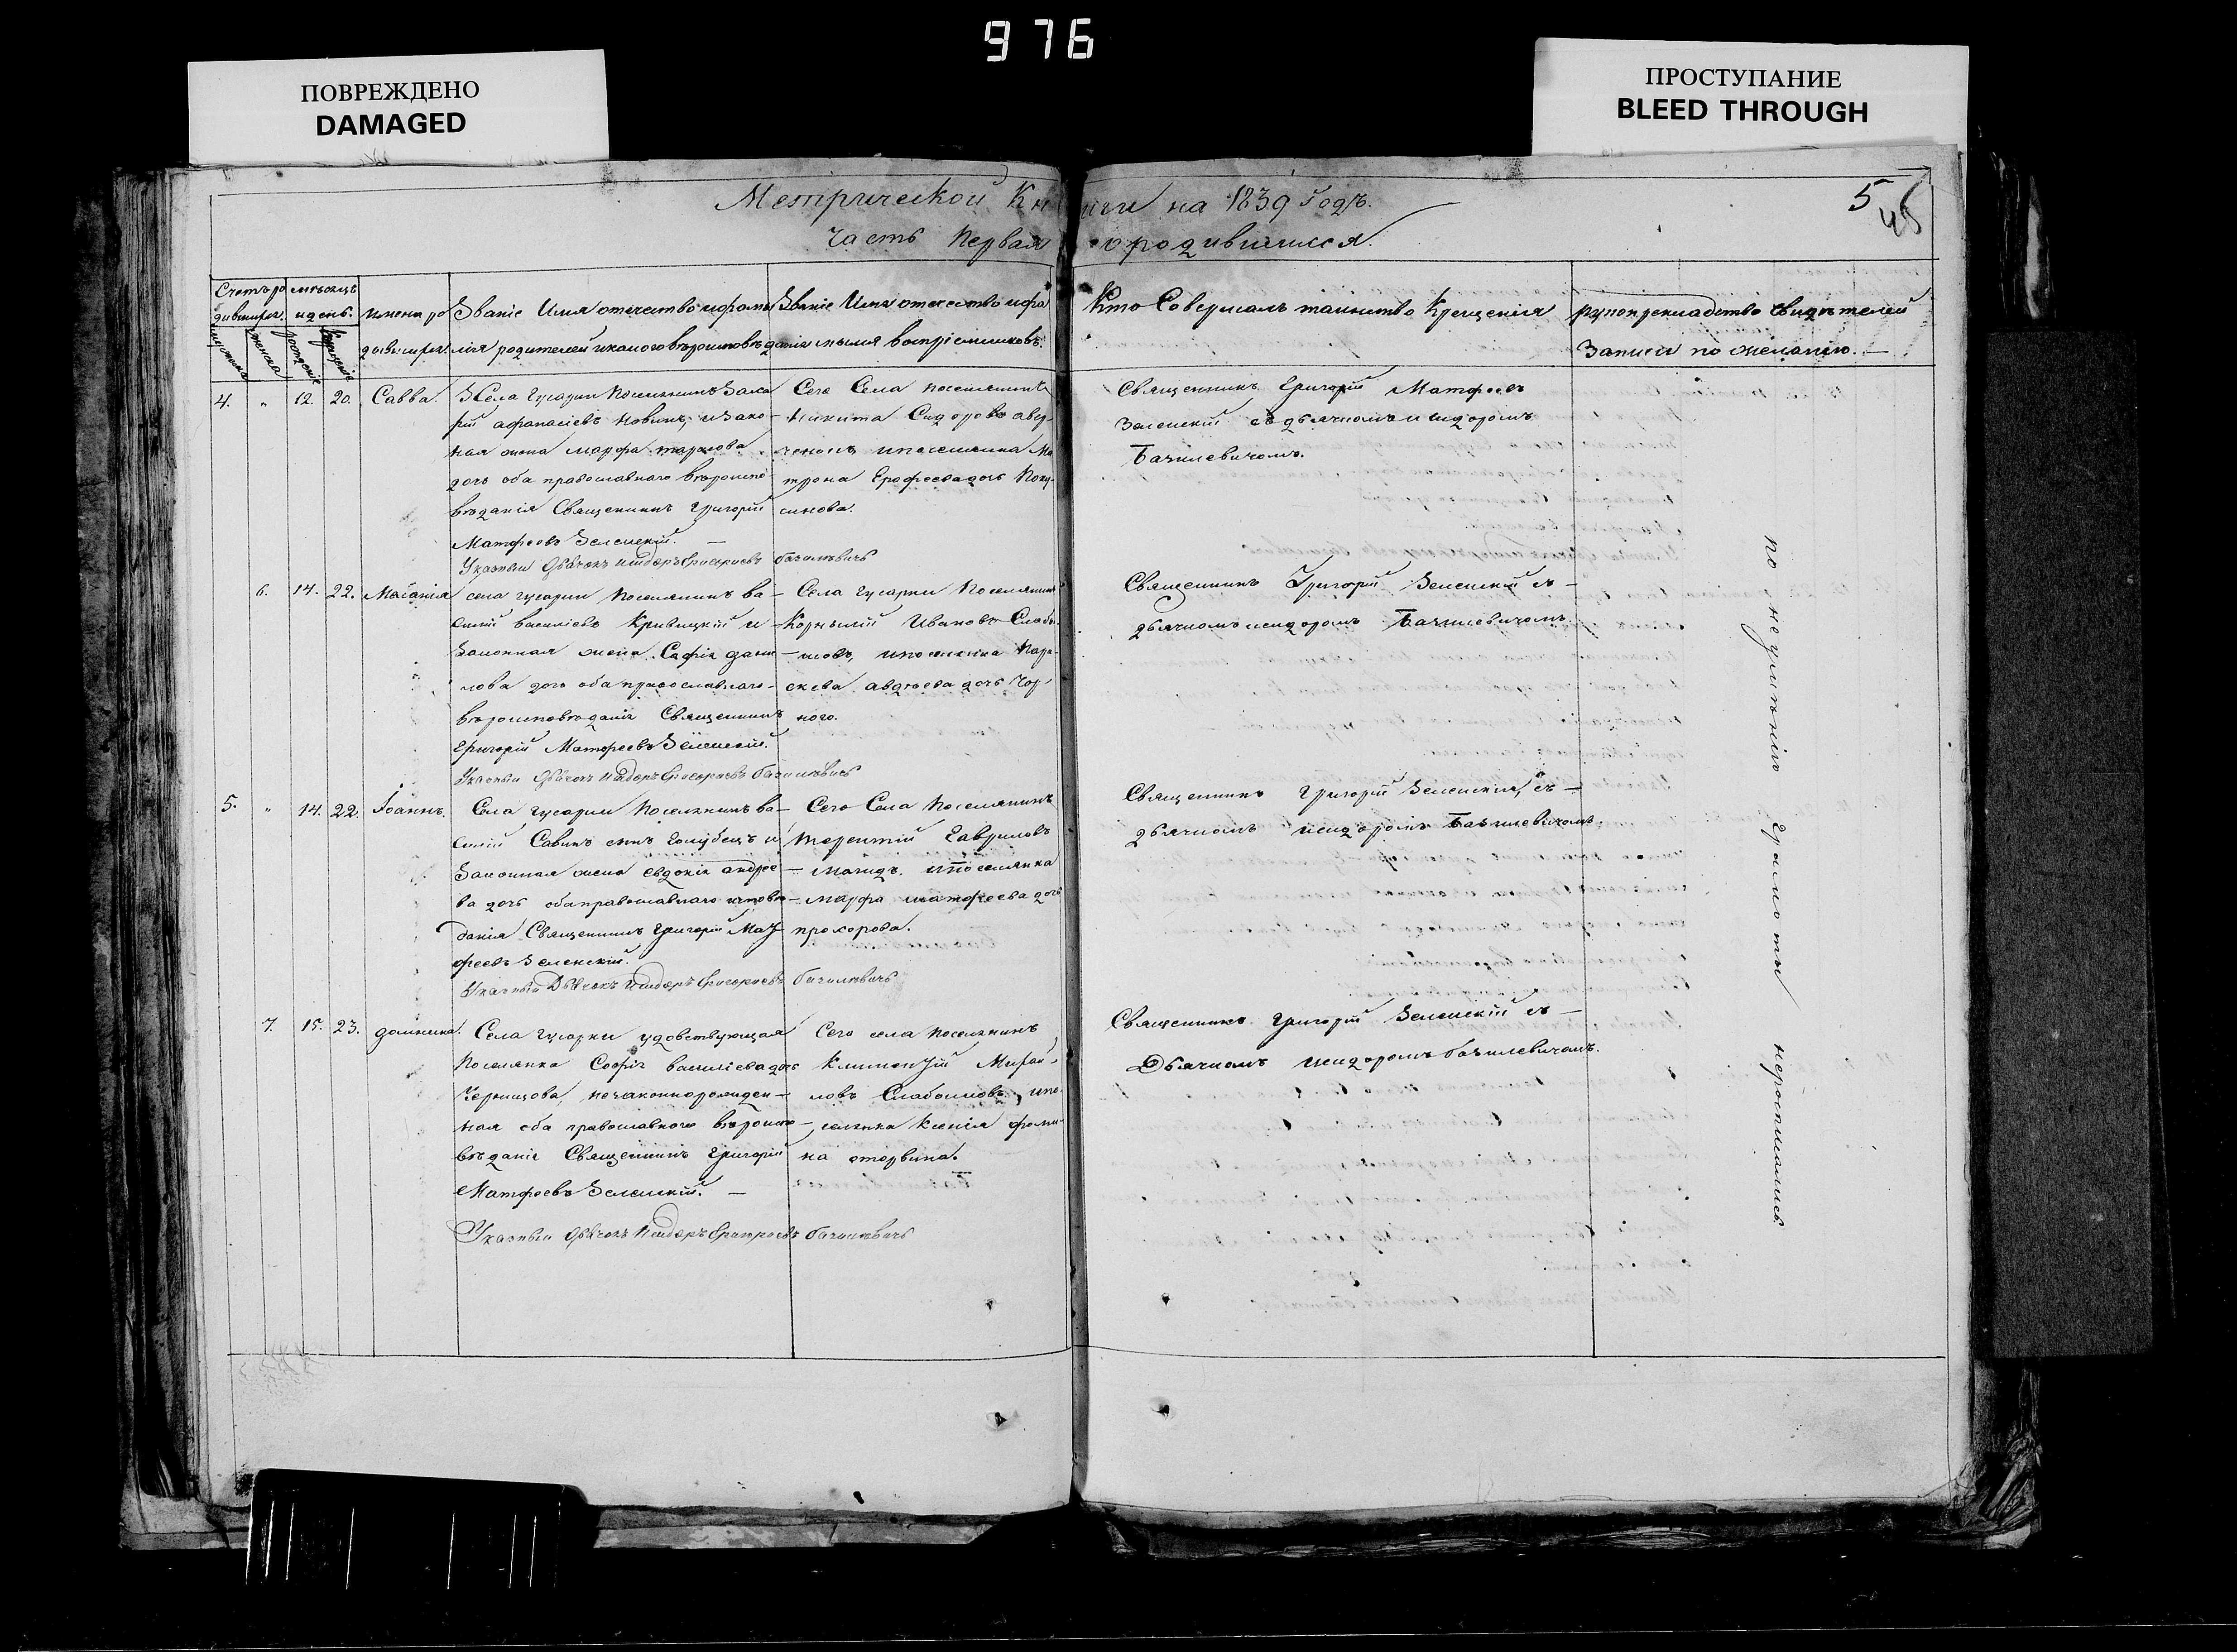 976
ПОВРЕЖДЕНО
DAMAGED
ПРОСТУПАНИЕ
BLEED THROUGH
Метрической Книги на 1839 Годъ.
5
45
Часть Первая о родившихся.
Счетъ ро
дившихся.
мѣсяцъ
и день.
Имена ро
дившихся.
Званіе Имя отечество и фами
лія родителей и какого вѣроисповѣданія
Званіе Имя отечество и фа
милія воспріемниковъ.
Кто Совершалъ таинство Крещенія
рукоприкладство свидѣтелей
Записи по желанію.
4. „ 12. 20. Савва.
Села Гусарки Поселянинъ Заха
рій Афанасіевъ Новикъ, и Зако-
ная жена Марфа
дочь оба православнаго вѣроиспо
вѣданія Священникъ Григорій
Матфеевъ Зеленскій.
Указный Дьячокъ Исидоръ Григориевъ Бачилевичь
Сего Села поселянинъ
Никита Сидоровъ Авер-
ченокъ и поселянка Ма
трона Ерофеева дочь
Священникъ Григорій Матфеевъ
Зеленскій съ дьячкомъ Исидоромъ
Бачилевичомъ.
6. 14. 22. Маланія
села Гусарки Поселянинъ Ва-
силій Василіевъ Кривицкій и
Законная жена Софія Дани-
лова дочь оба православнаго
вѣроисповѣданія Священникъ
Григорій Матфеевъ Зеленскій.
Указный Дьячокъ Исидоръ Григориевъ Бачилевичь
Села Гусарки Поселянинъ
Корнилій Ивановъ
и поселянка Пара-
скева Авдѣева дочь Чор-
ного.
Священникъ Григорій Зеленскій съ
дьячкомъ Исидоромъ Бачилевичомъ
5. „ 14. 22. Іоаннъ.
Села Гусарки Поселянинъ Ва-
силій Савинъ сынъ Голубецъ и
Законная жена Евдокія Андрее
ва дочь оба православнаго исповѣ
данія Священникъ Григорій Мат
феевъ Зеленскій.
Указный Дьячокъ Исидоръ Григориевъ Бачилевичь
Сего Села Поселянинъ
Терентій Гавриловъ
и поселянка
Марфа Матфеева дочь
прохорова.
Священникъ Григорій Зеленскій, съ
дьячкомъ Исидоромъ Бачилевичомъ.
7. 15. 23. Домникія.
Села Гусарки удовствующая
Поселянка Софія Василіева дочь
Чернишова, незаконнорожден-
ная оба православного вѣроиспо
вѣданія Священникъ Григорій
Матфеевъ Зеленскій.
Указный Дьячокъ Исидоръ Григориевъ Бачилевичь
Сего села поселянинъ
Климентій Михай-
ловъ и по-
селянка Ксенія Фоми-
на
Священникъ Григорій Зеленскій съ
Дьячкомъ Исидоромъ Бачилевичомъ.
по неумѣнію Грамоты неросписались